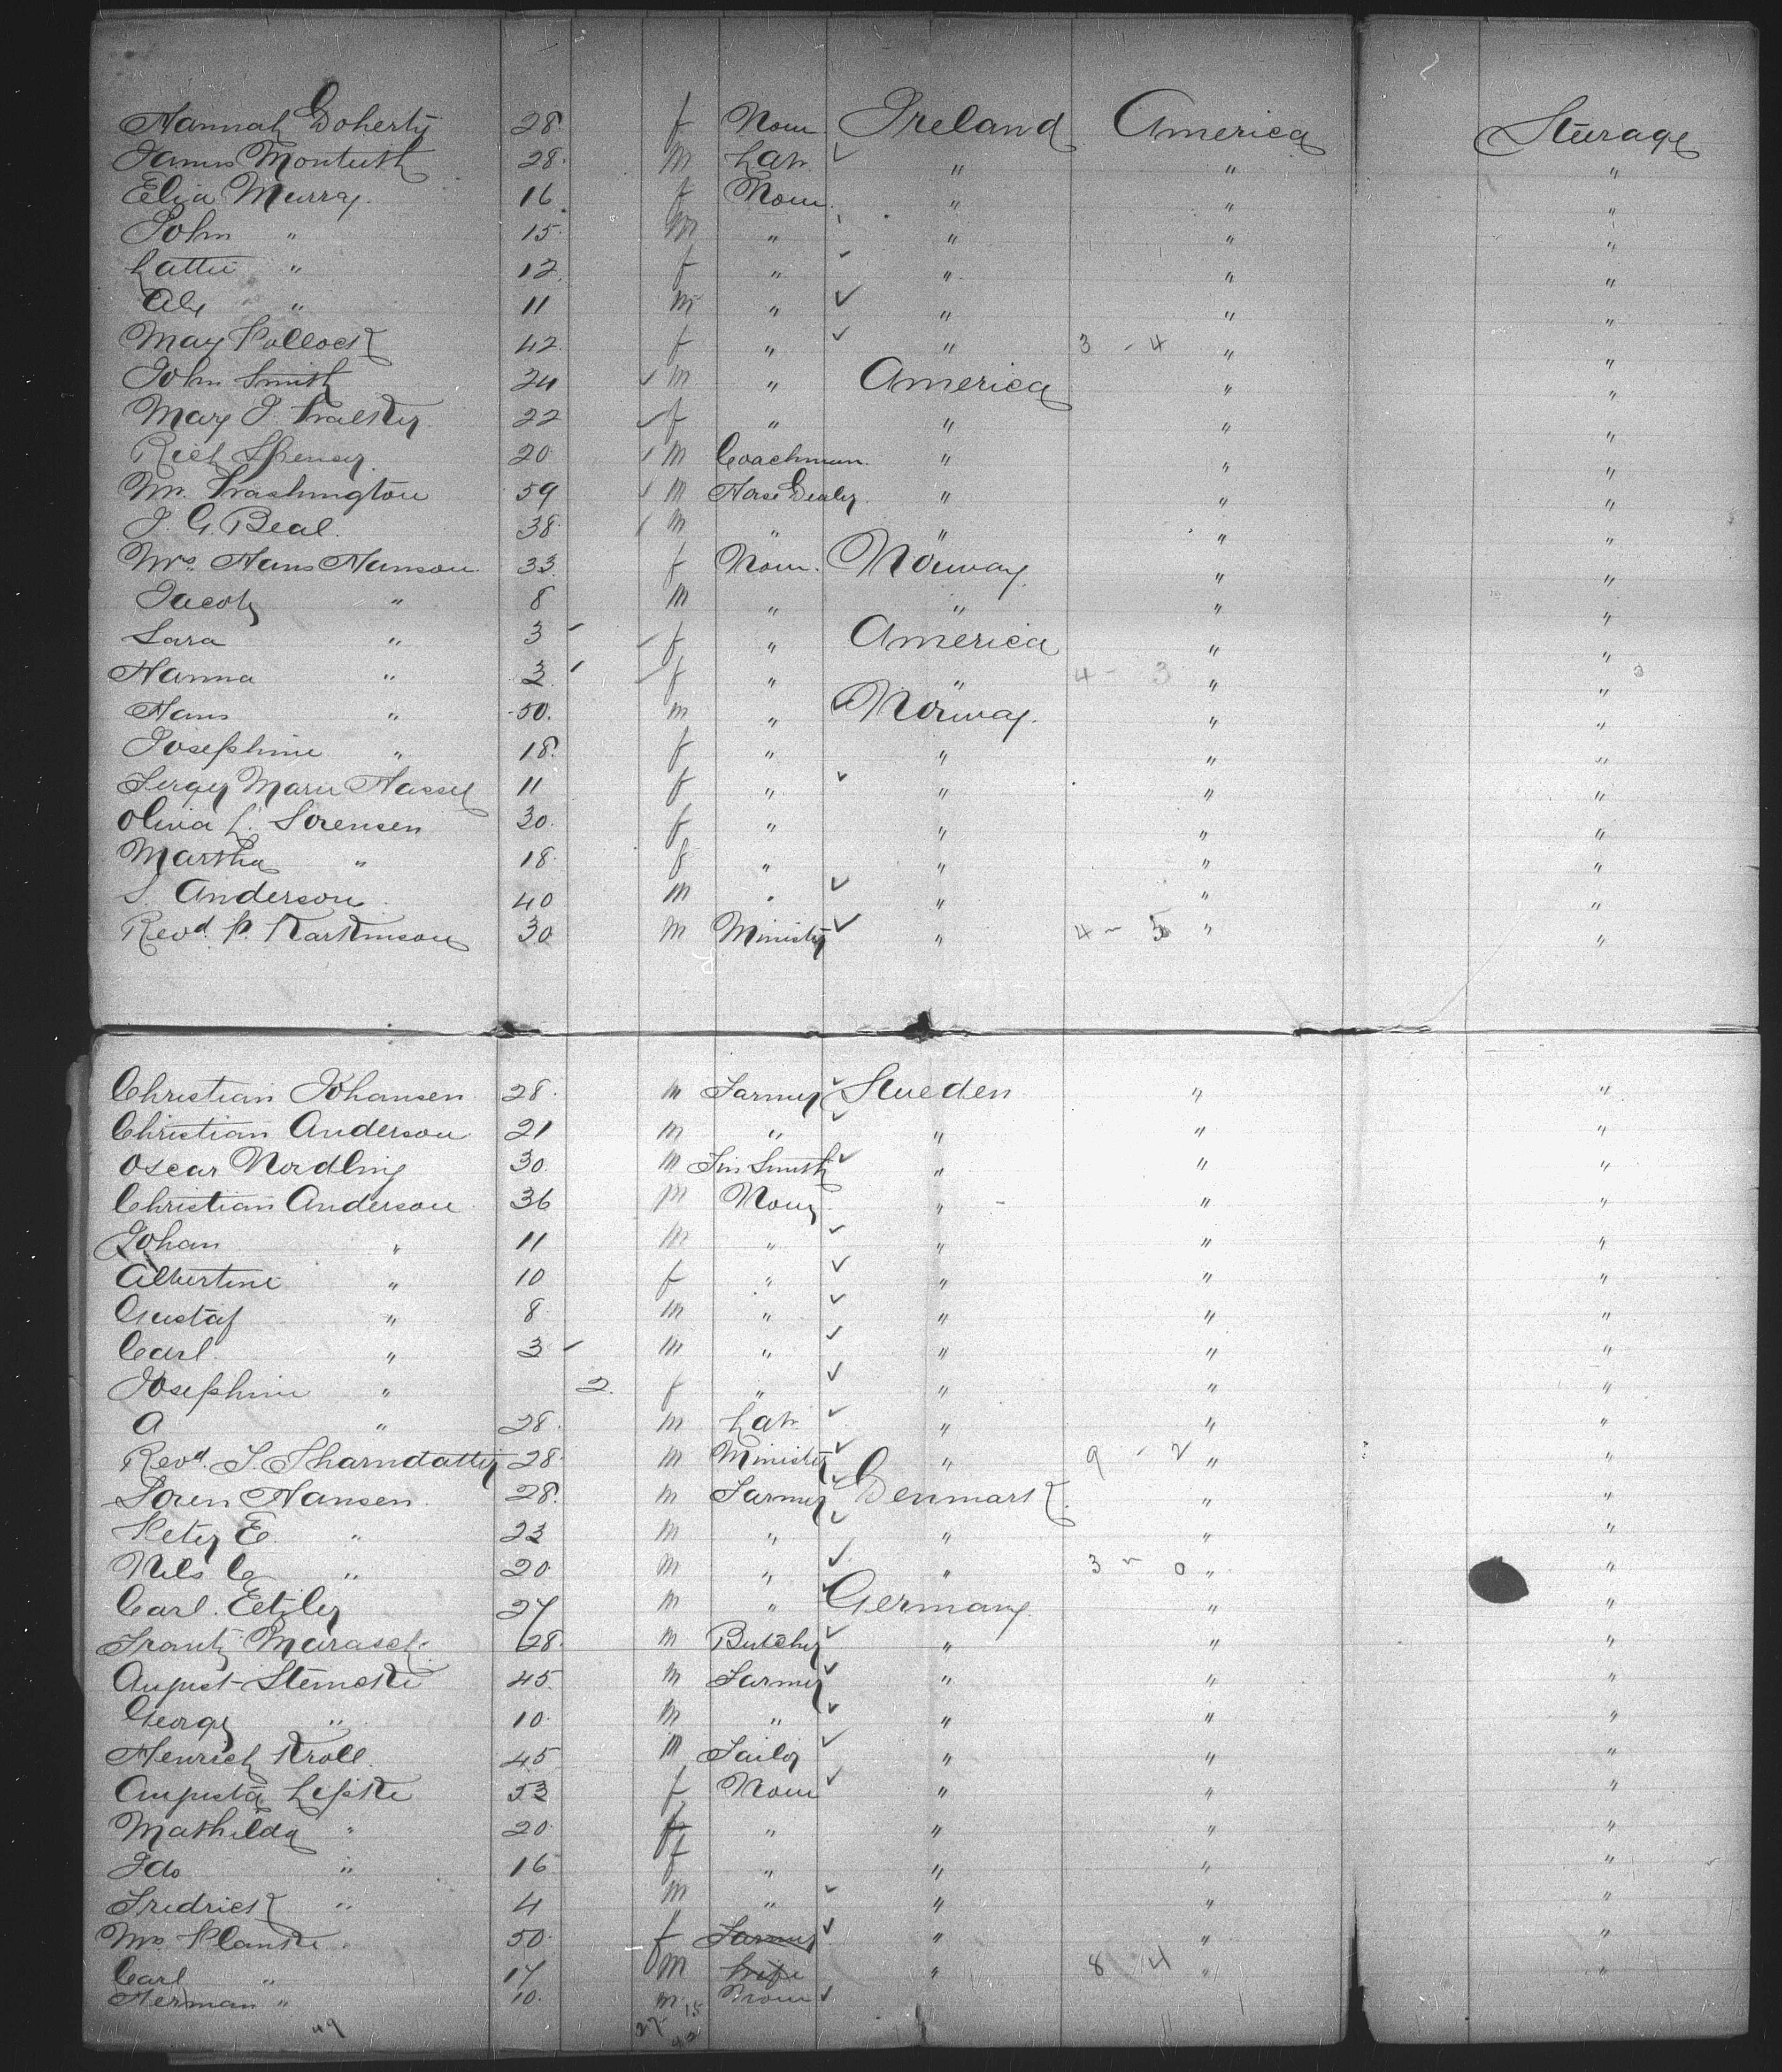 Hannah Doherty 28 f None Ireland America Steerage
James Monteith 28 m Lab. ✓ " " "
Eliza Murray 16 f None " " "
John " 15 m " " " "
Lattie " 12 f " ✓ " " "
Alex " 11 m " ✓ " " "
May Pollock 42 f " ✓ " 3 - 4 " "
John Smith 24 ✓ m " America " "
Mary J. 22 ✓ f " " " "
Rich Spencer 20 ✓ m Coachman " " "
Wm. Washington 59 ✓ m Horse Dealer " " "
J. G. Beal 38 ✓ m " " " "
Mrs. Hans Hanson 33 f None Norway " "
Jacob " 8 m " " " "
Sara " 3 ✓ f " America " "
Hanna " 3 ✓ f " " 4 - 3 " "
Hans " 50 m " Norway " "
Josephine " 18 f " " " "
Marie Hassel 11 f " ✓ " " "
Olivia L. Sorensen 30 f " " " "
Martha " 18 f " " " "
S. Anderson 40 m " ✓ " " "
Revd. P. 30 m Minister ✓ " 4 - 5 " "
Christian Johansen 28 m Farmer ✓ Sweden " "
Christian Anderson 21 m " ✓ " " "
Oscar Nordling 30 m Tin Smith ✓ " " "
Christian Anderson 36 m None " " "
Johan " 11 m " ✓ " " "
Albertine " 10 f " ✓ " " "
Gustaf " 8 m " ✓ " " "
Carl " 3 ✓ m " ✓ " " "
Josephine " 2 f " ✓ " " "
A " 28 m Lab. ✓ " " "
Revd. J. 28 m Minister ✓ " 9 - 2 " "
Soren Hansen 28 m Farmer ✓ Denmark " "
Peter E. " 23 m " ✓ " " "
Nils C. " 20 m " ✓ " 3 - 0 " "
Carl Etzler 27 m " ✓ Germany " "
Frantz Marasch 28 m Butcher ✓ " " "
August Stemcke 45 m Farmer ✓ " " "
George " 10 m " ✓ " " "
Henrich Kroll 45 m Tailor ✓ " " "
Augusta Lipke 53 f None ✓ " " "
Mathilda " 20 f " " " "
Ida " 16 f " " " "
Fredrick " 4 m " ✓ " " "
Mrs Planke 50 f Farmer ✓ " " "
Carl " 17 m Wife " 8 14 " "
Herman " 10 m None ✓
49 27 15
42